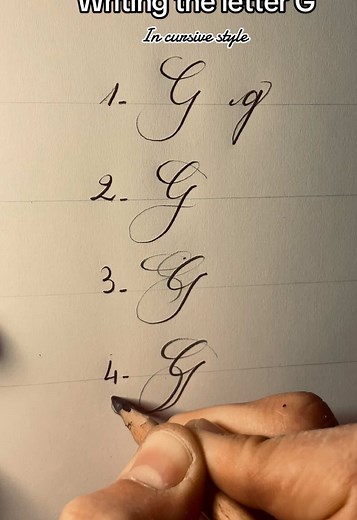 Writing the letter G
In cursive style
1- G g
2- G
3- G
4- G